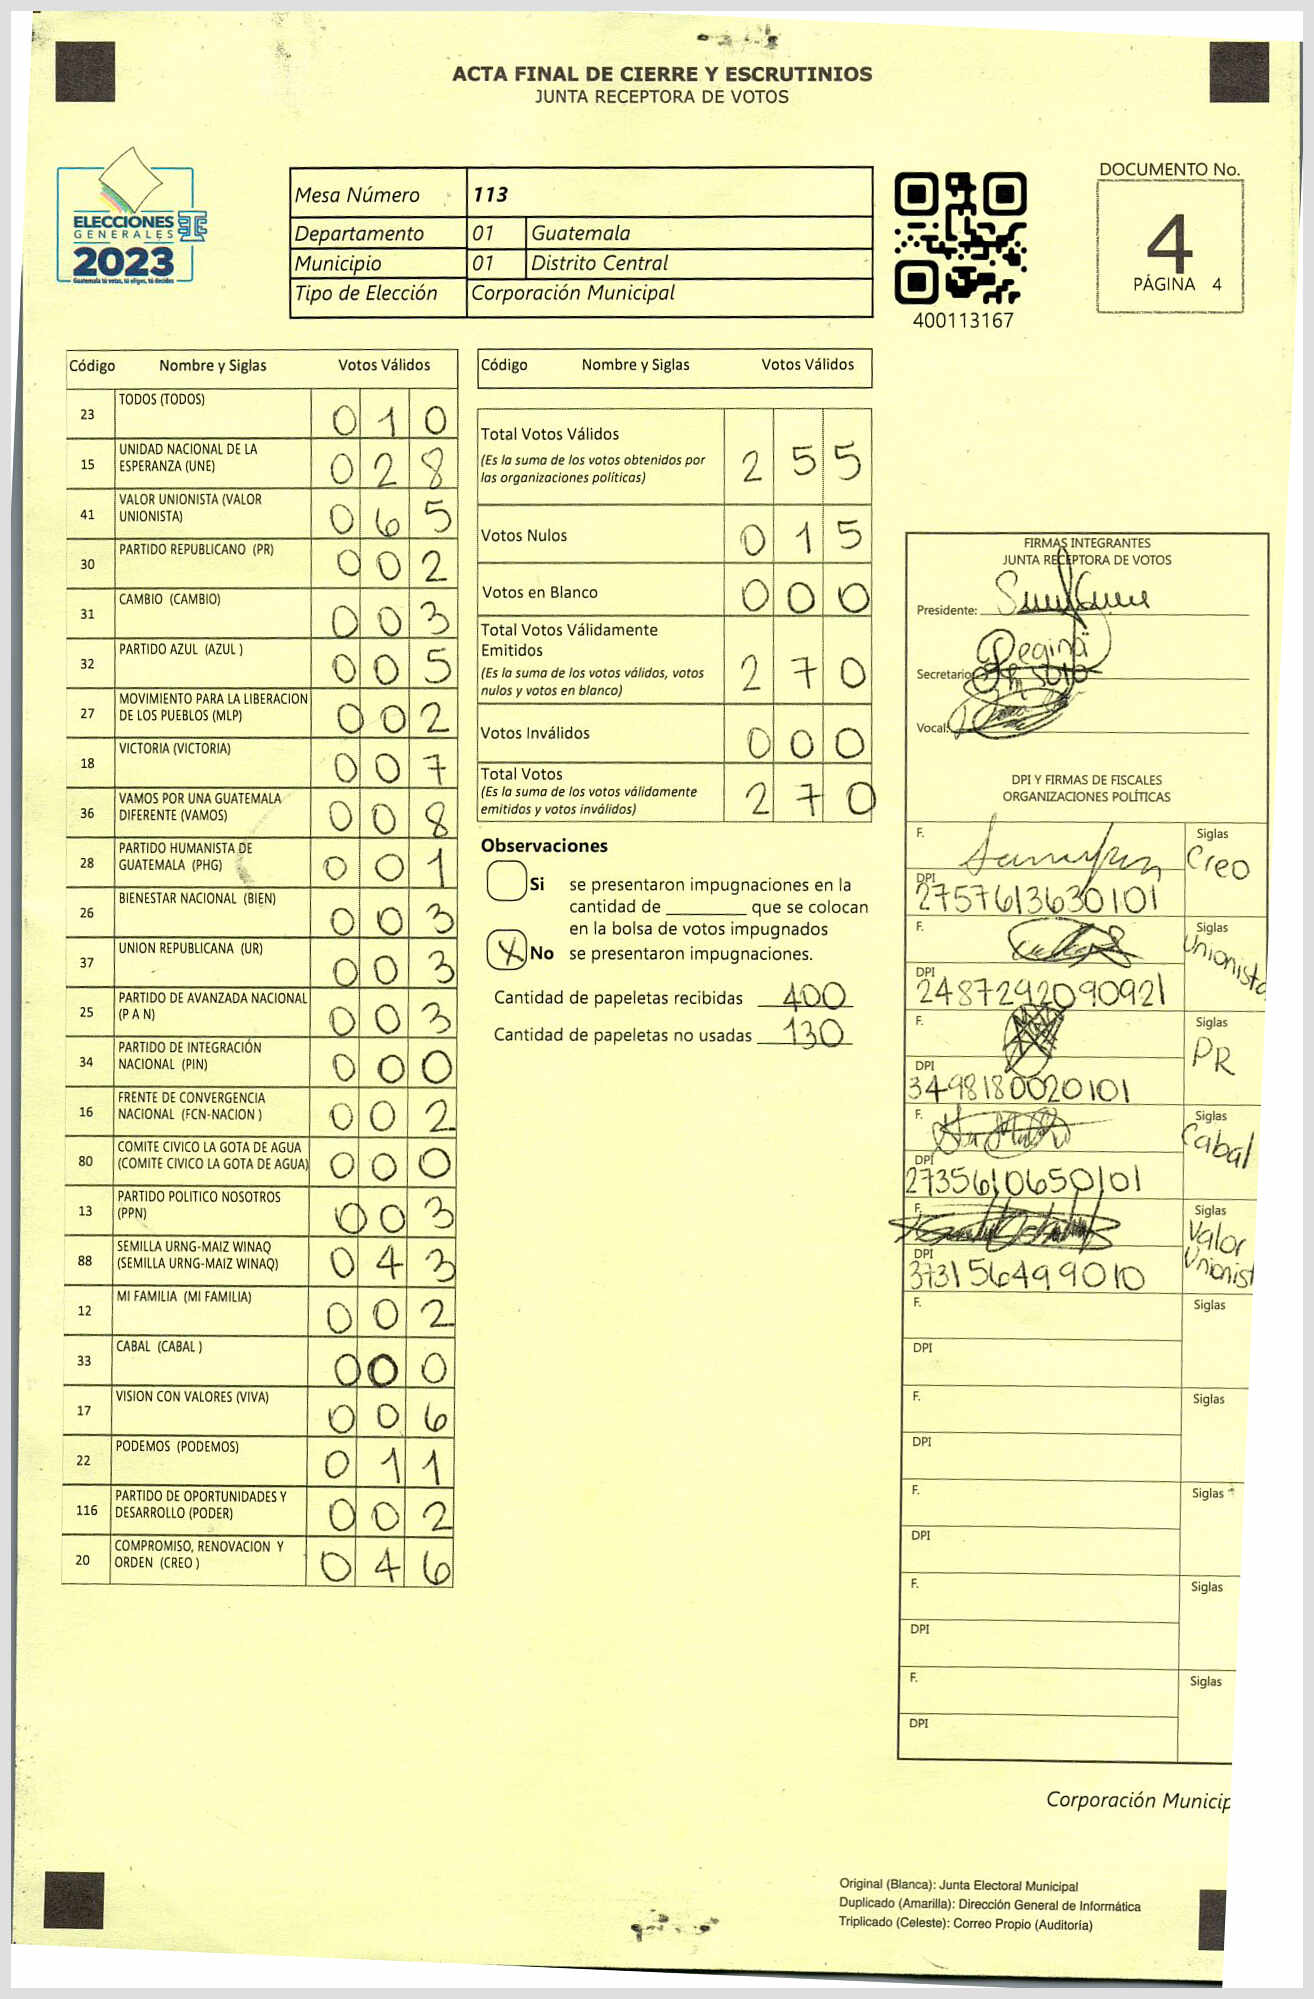 ACTA FINAL DE CIERRE Y ESCRUTINIOS
JUNTA RECEPTORA DE VOTOS
ELECCIONES
GENERALES
2023
Guatemala tú votas, tú eliges, tú decides
Mesa Número 113
Departamento 01 Guatemala
Municipio 01 Distrito Central
Tipo de Elección Corporación Municipal
400113167
DOCUMENTO No.
4
PÁGINA 4
Código Nombre y Siglas Votos Válidos
23 TODOS (TODOS) 0 1 0
15 UNIDAD NACIONAL DE LA ESPERANZA (UNE) 0 2 8
41 VALOR UNIONISTA (VALOR UNIONISTA) 0 6 5
30 PARTIDO REPUBLICANO (PR) 0 0 2
31 CAMBIO (CAMBIO) 0 0 3
32 PARTIDO AZUL (AZUL ) 0 0 5
27 MOVIMIENTO PARA LA LIBERACION DE LOS PUEBLOS (MLP) 0 0 2
18 VICTORIA (VICTORIA) 0 0 7
36 VAMOS POR UNA GUATEMALA DIFERENTE (VAMOS) 0 0 8
28 PARTIDO HUMANISTA DE GUATEMALA (PHG) 0 0 1
26 BIENESTAR NACIONAL (BIEN) 0 0 3
37 UNION REPUBLICANA (UR) 0 0 3
25 PARTIDO DE AVANZADA NACIONAL (P A N) 0 0 3
34 PARTIDO DE INTEGRACIÓN NACIONAL (PIN) 0 0 0
16 FRENTE DE CONVERGENCIA NACIONAL (FCN-NACION ) 0 0 2
80 COMITE CIVICO LA GOTA DE AGUA (COMITE CIVICO LA GOTA DE AGUA) 0 0 0
13 PARTIDO POLITICO NOSOTROS (PPN) 0 0 3
88 SEMILLA URNG-MAIZ WINAQ (SEMILLA URNG-MAIZ WINAQ) 0 4 3
12 MI FAMILIA (MI FAMILIA) 0 0 2
33 CABAL (CABAL ) 0 0 0
17 VISION CON VALORES (VIVA) 0 0 6
22 PODEMOS (PODEMOS) 0 1 1
116 PARTIDO DE OPORTUNIDADES Y DESARROLLO (PODER) 0 0 2
20 COMPROMISO, RENOVACION Y ORDEN (CREO ) 0 4 6
Código Nombre y Siglas Votos Válidos
Total Votos Válidos 2 5 5
(Es la suma de los votos obtenidos por
las organizaciones políticas)
Votos Nulos 0 1 5
Votos en Blanco 0 0 0
Total Votos Válidamente
Emitidos 2 7 0
(Es la suma de los votos válidos, votos
nulos y votos en blanco)
Votos Inválidos 0 0 0
Total Votos 2 7 0
(Es la suma de los votos válidamente
emitidos y votos inválidos)
Observaciones
Si se presentaron impugnaciones en la
cantidad de ________ que se colocan
en la bolsa de votos impugnados
X No se presentaron impugnaciones.
Cantidad de papeletas recibidas 400
Cantidad de papeletas no usadas 130
FIRMAS INTEGRANTES
JUNTA RECEPTORA DE VOTOS
Presidente:
Regina
Secretario
Vocal:
DPI Y FIRMAS DE FISCALES
ORGANIZACIONES POLÍTICAS
F. Siglas Creo
DPI 2757613630101
F. Siglas Unionista
DPI 2487292090921
F. Siglas PR
DPI 3498180020101
F. Siglas Cabal
DPI 2735610650101
F. Siglas Valor Unionist
DPI 373156499010
F. Siglas
DPI
F. Siglas
DPI
F. Siglas
DPI
F. Siglas
DPI
F. Siglas
DPI
Corporación Municip
Original (Blanca): Junta Electoral Municipal
Duplicado (Amarilla): Dirección General de Informática
Triplicado (Celeste): Correo Propio (Auditoría)